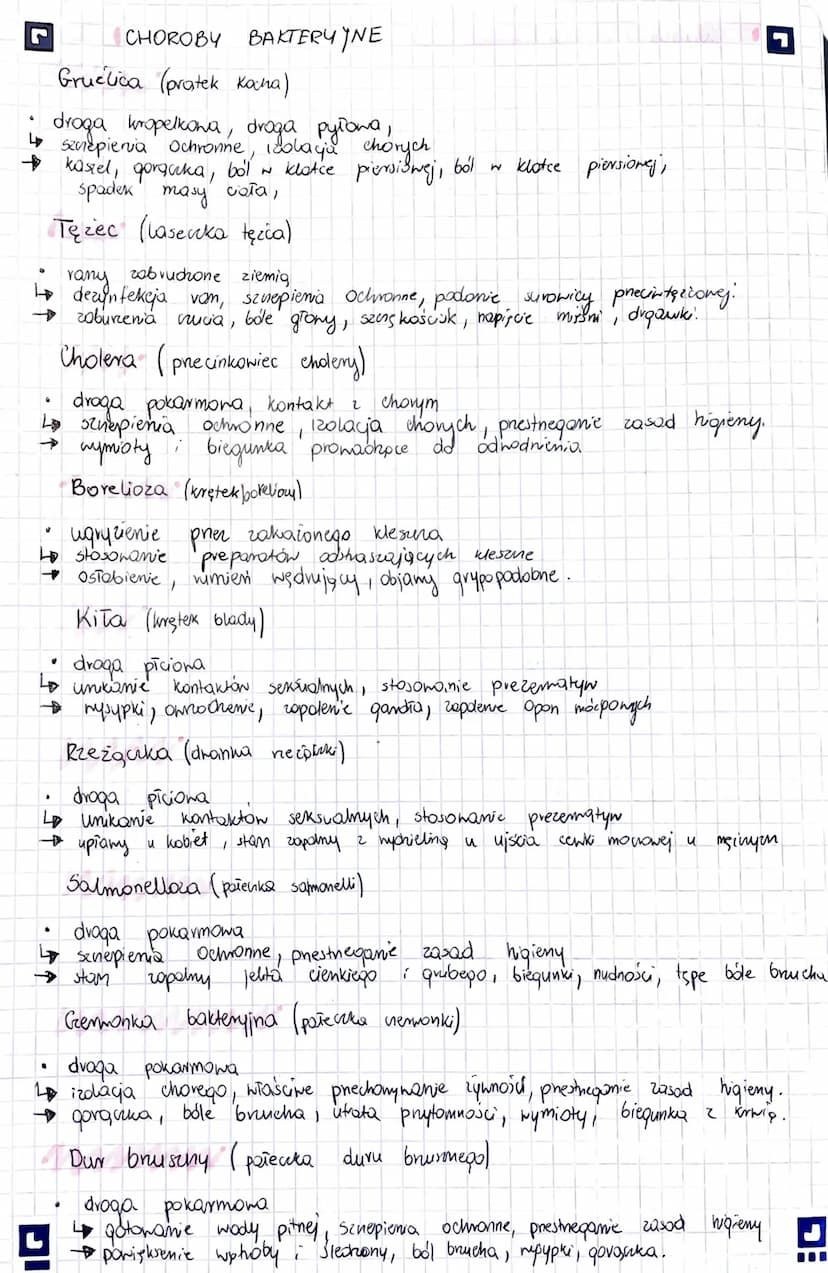 CHOROBY BAKTERYJNE
Gruźlica (prątek Kocha)
• droga kropelkowa, droga pyłowa,
↳ szczepienia ochronne, izolacja chorych
→ kaszel, gorączka, ból w klatce piersiowej, ból w klatce piersiowej,
spadek masy ciała,
Tężec (laseczka tężca)
• rany zabrudzone ziemią
↳ dezynfekcja ran, szczepienia ochronne, podanie surowicy przeciwtężcowej.
→ zaburzenia czucia, bóle głowy, szczękościsk, napięcie mięśni, drgawki.
Cholera (przecinkowiec cholery)
• droga pokarmowa, kontakt z chorym
↳ szczepienia ochronne, izolacja chorych, przestrzeganie zasad higieny.
→ wymioty i biegunka prowadzące do odwodnienia.
Borelioza (krętek boreliozy)
• ugryzienie przez zakażonego kleszcza
↳ stosowanie preparatów odstraszających kleszcze
→ osłabienie, rumień wędrujący, objawy grypopodobne.
Kiła (krętek blady)
• droga płciowa
↳ unikanie kontaktów seksualnych, stosowanie prezerwatyw
→ wysypki, owrzodzenie, zapalenie gardła, zapalenie opon mózgowych
Rzeżączka (dwoinka rzeżączki)
• droga płciowa
↳ unikanie kontaktów seksualnych, stosowanie prezerwatyw
→ upławy u kobiet, stan zapalny z wydzieliną u ujścia cewki moczowej u mężczyzn
Salmonelloza (pałeczka salmonelli)
• droga pokarmowa
↳ szczepienia ochronne, przestrzeganie zasad higieny
→ stan zapalny jelita cienkiego i grubego, biegunki, nudności, tępe bóle brzucha
Czerwonka bakteryjna (pałeczka czerwonki)
• droga pokarmowa
↳ izolacja chorego, właściwe przechowywanie żywności, przestrzeganie zasad higieny.
→ gorączka, bóle brzucha, utrata przytomności, wymioty, biegunka z krwią.
Dur brzuszny (pałeczka duru brzusznego)
• droga pokarmowa
↳ gotowanie wody pitnej, szczepienia ochronne, przestrzeganie zasad higieny
→ powiększenie wątroby i śledziony, ból brzucha, wysypki, gorączka.